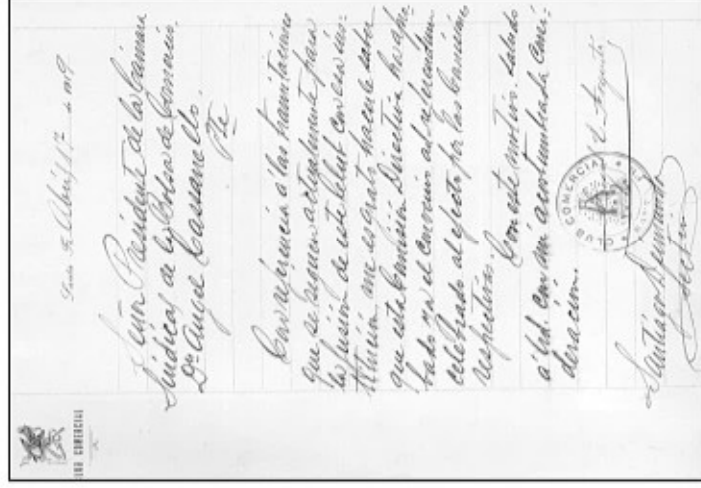 CLUB COMERCIAL
Santa Fe, Abril 17 de 1919
Señor Presidente de la Cámara
Sindical de la Bolsa de Comercio.
Dn. Angel Cassanello.
Pte
Con referencia á las tramitaciones
que se siguen actualmente para
la fusión de este Club con esa ins-
titución, me es grato hacerle saber
que esta Comisión Directiva ha apro-
bado ya el convenio ad referendum
celebrado al efecto por las Comisiones
respectivas.
Con este motivo, saludo
á Ud. con mi acostumbrada consi-
deración.
CLUB COMERCIAL
Santiago